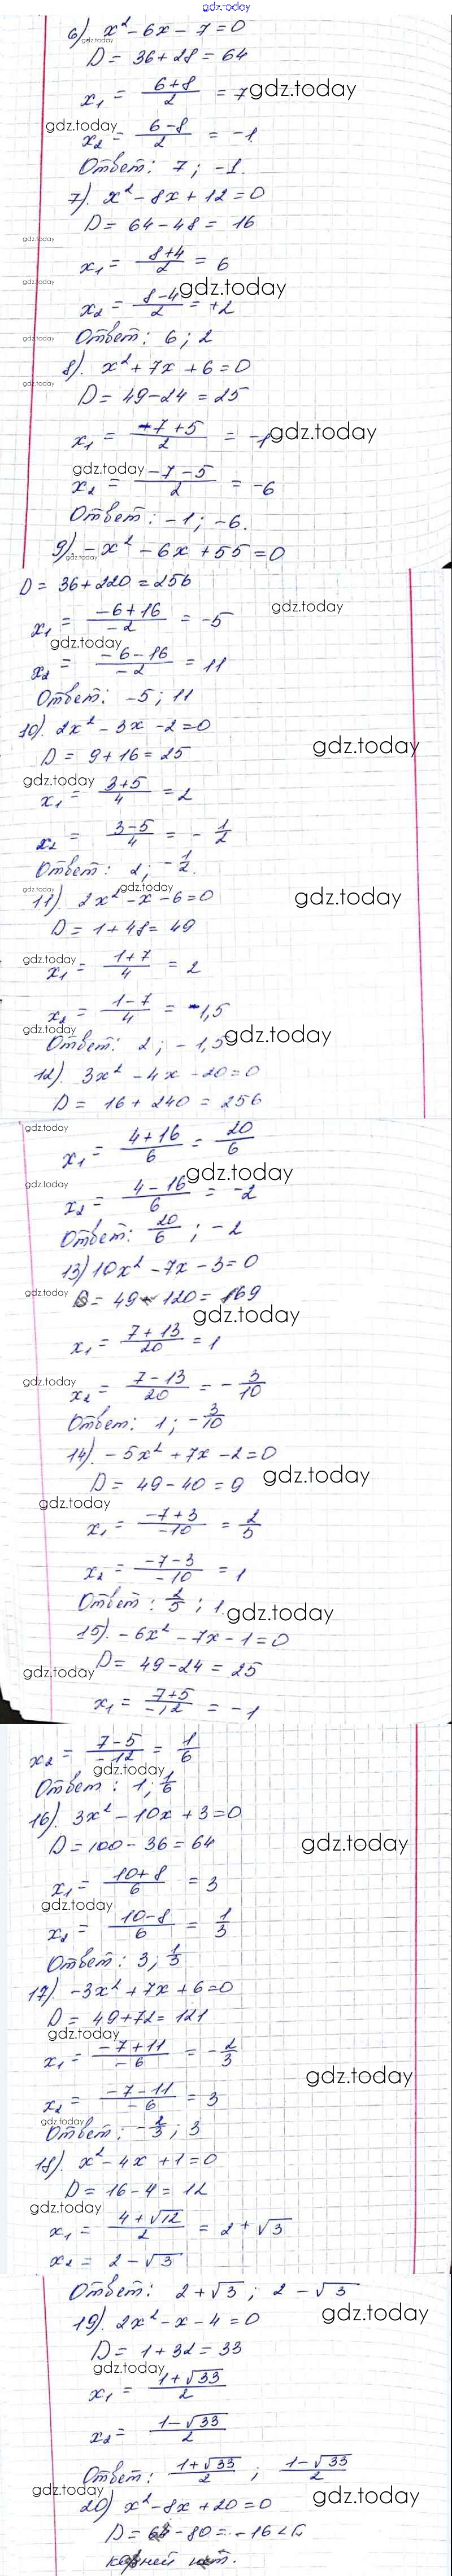 gdz.today
6) x² - 6x - 7 = 0
gdz.today
D = 36 + 28 = 64
x₁ = (6+8)/2 = 7 gdz.today
gdz.today
x₂ = (6-8)/2 = -1
Ответ: 7; -1.
7). x² - 8x + 12 = 0
D = 64 - 48 = 16
gdz.today
x₁ = (8+4)/2 = 6
gdz.today
x₂ = (8-4)/2 = +2 gdz.today
gdz.today
Ответ: 6; 2
8). x² + 7x + 6 = 0
gdz.today
D = 49 - 24 = 25
x₁ = (-7+5)/2 = -1 gdz.today
gdz.today
x₂ = (-7-5)/2 = -6
Ответ: -1; -6.
9) -x² - 6x + 55 = 0
gdz.today
D = 36 + 220 = 256
gdz.today
x₁ = (-6+16)/-2 = -5
gdz.today
x₂ = (-6-16)/-2 = 11
Ответ: -5; 11
10). 2x² - 3x - 2 = 0
gdz.today
D = 9 + 16 = 25
gdz.today
x₁ = (3+5)/4 = 2
x₂ = (3-5)/4 = -1/2
Ответ: 2; -1/2.
gdz.today
11). 2x² - x - 6 = 0
gdz.today
D = 1 + 48 = 49
gdz.today
x₁ = (1+7)/4 = 2
x₂ = (1-7)/4 = -1,5
gdz.today
Ответ: 2; -1,5 gdz.today
12). 3x² - 4x - 20 = 0
D = 16 + 240 = 256
gdz.today
x₁ = (4+16)/6 = 20/6
gdz.today
gdz.today
x₂ = (4-16)/6 = -2
Ответ: 20/6; -2
13) 10x² - 7x - 3 = 0
gdz.today
D = 49 - 120 = 169
gdz.today
x₁ = (7+13)/20 = 1
gdz.today
x₂ = (7-13)/20 = -3/10
Ответ: 1; -3/10
14). -5x² + 7x - 2 = 0
D = 49 - 40 = 9 gdz.today
gdz.today
x₁ = (-7+3)/-10 = 2/5
x₂ = (-7-3)/-10 = 1
Ответ: 2/5; 1. gdz.today
15). -6x² - 7x - 1 = 0
gdz.today
D = 49 - 24 = 25
x₁ = (7+5)/-12 = -1
x₂ = (7-5)/-12 = 1/6
gdz.today
Ответ: 1; 1/6
16). 3x² - 10x + 3 = 0
D = 100 - 36 = 64
gdz.today
x₁ = (10+8)/6 = 3
gdz.today
x₂ = (10-8)/6 = 1/3
Ответ: 3; 1/3
17) -3x² + 7x + 6 = 0
D = 49 + 72 = 121
gdz.today
x₁ = (-7+11)/-6 = -2/3
gdz.today
x₂ = (-7-11)/-6 = 3
gdz.today
Ответ: -2/3; 3
18). x² - 4x + 1 = 0
D = 16 - 4 = 12
gdz.today
x₁ = (4+√12)/2 = 2+√3
x₂ = 2 - √3
Ответ: 2+√3; 2-√3
gdz.today
19). 2x² - x - 4 = 0
D = 1 + 32 = 33
gdz.today
x₁ = (1+√33)/2
x₂ = (1-√33)/2
Ответ: (1+√33)/2; (1-√33)/2
gdz.today
gdz.today
20) x² - 8x + 20 = 0
D = 64 - 80 = -16 <
корней нет.